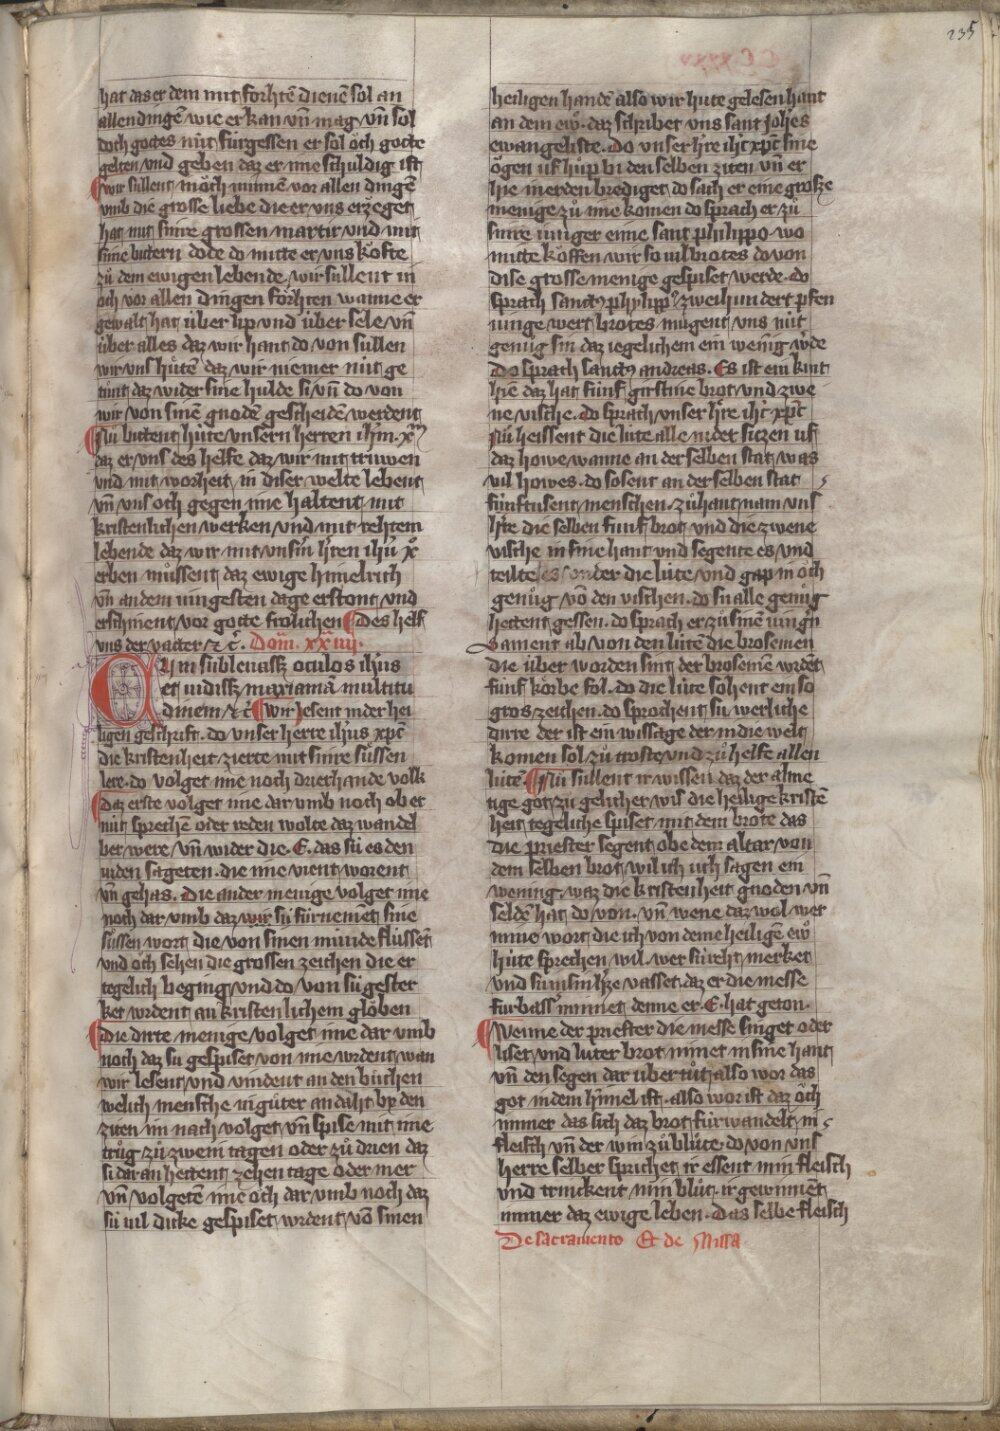 235
CCxxxv
hat das er dem mit forhtē dienē sol an
allen dingē wie er kan vn̄ mag vn̄ sol
doch gottes nv̍t fu̍rgessen er sol oͮch gotte
gelten vnd geben daz er ime schuldig ist
wir su̍llent in oͮch minnē vor allen dingē
vmb die grosse liebe die er vns erzeget
hat mit sinre grossen martir vnd mit
sime bittern dode do mitte er vns koͮfte
zuͦ dem ewigen lebende wir su̍llent in
oͮch vor allen dingen foͤrhten wanne er
gewalt hat u̍ber lip vnd u̍ber sele vn̄
u̍ber alles daz wir hant do von su̍llen
wir vns huͤtē daz wir niemer nu̍t ge
tuͦnt daz wider sine hulde si vn̄ do von
wir von sinē gnodē gescheidē werdent
Nu̍ bittent hu̍te vnsern herren ihm̄ xp̄m
daz er vns des helfe daz wir mit tru̍wen
vnd mit worheit in diser welte lebent
vn̄ vns och gegen ime haltent mit
kristenlichen werken vnd mit rehtem
lebende daz wir mit vnsm̄ hr̄ren ihu̍ xp̄o
erben muͤssent daz ewige himelrich
vn̄ an dem iungesten dage erstont vnd
erschinent vor gotte froͤlichen Des helf
vns der vatter ⁊ c̄. Dom̄. xxiiij.
Cum subleuassꝫ oculos ihus
et uidissꝫ maximā multitu
dinem ⁊ c̄ Wir lesent in der hei
ligen geschrift. do vnser herre ihus xp̄c
die kristenheit zierte mit sinre suͤssen
lere. do volget ime noch drierhande volk
Daz erste volget ime dar vmb noch ob er
nu̍t sprechē oder reden wolte daz wandel
ber were vn̄ wider die. E. das su̍ es den
iuden sageten. die ime vient worent
vn̄ gehas. Die ander menige volget ime
noch dar vmb daz wir su̍ fu̍rnemet sine
suͤssen wort die von sinen munde flu̍ssēt
vnd och sehen die grossen zeichen die er
tegelich beging vnd do von su̍ gester
ket wrdent an kristenlichem gloͮben
Die dirte menige volget ime dar vmb
noch daz su̍ gespiset von ime wrdent wan
wir lesent vnd vindent an den buͤchen
welich mensche in guͦter andaht bi den
ziten im nach volget vn̄ spise mit ime
truͦg zuͦ zwein tagen oder zuͦ drien daz
si dar an hettent zehen tage oder mer
vn̄ volgetē ime och dar vmb noch daz
su̍ vil dicke gespiset wrdent vō sinen
heiligen handē also wir hu̍te gelesen hant
an dem ewͦ. daz schribet vns sant Joh̄es
ewangeliste. Do vnser hr̄re ihc̄ xp̄c sine
oͮgen uf huͦp bi den selben ziten vn̄ er
hie in erden brediget do sach er eine grosze
menige zuͦ ime komen do sprach er zuͦ
sinre iunger eime sant philippo wo
mitte koͮffen wir so vil brotes do von
dise grosse menige gespiset werde. do
sprach sanctꝰ phylippꝰ zweihundert pfen
ninge wert brotes mu̍gent vns nu̍t
genuͦg sin daz iegelichem ein wenig wͬde
Do sprach sanctꝰ andreas. Es ist ein kint
hie daz hat fu̍nf girstine brot vnd zwe
ne vische. do sprach vnser hr̄re ihc̄ xp̄c
Nu̍ heissent die lu̍te alle nider sitzen uf
daz howe wanne an der selben stat was
vil howes. do sosent an der selben stat
fu̍nftusent menschen. zuͦhant nam vns
hr̄re die selben fu̍nf brot vnd die zwene
vische in sine hant vnd segente es vnd
teilte es vnder die lu̍te vnd gap in oͮch
genuͦg vō den vischen. do su̍ alle genuͦg
hettent gessen. do sprach er zuͦ sinē iungn̄
sament ab von den lu̍tē die brosemen
die u̍ber worden sint der brosemē wrdēt
fu̍nf koͤrbe fol. do die lu̍te sohent ein so
gros zeichen. do sprochent su̍ werliche
dirre der ist ein wissage der in die welt
komen sol zuͦ troste vnd zuͦ helfe allen
lu̍tē. Nu̍ su̍llent ir wissen daz der alme
tige got zu gelicher wis die heilige kristē
heit tegeliche spiset mit dem brote das
die priester segent obe dem altar von
dem selben brot wil ich u̍ch sagen ein
wening waz die kristenheit gnoden vn̄
seldē hat do von. vn̄ wene daz wol wer
mine wort die ich von deme heiligē ewͦ
hu̍te sprechen wil. wer su̍ reht merket
vnd su̍ in sin hꝫe vasset daz er die messe
fu̍rbass minnet denne er. E. hat geton.
Wenne der priester die messe singet oder
liset vnd luter brot nimet in sine hant
vn̄ den segen dar u̍ber tuͦt also wor das
got in dem himel ist. also wor ist daz oͮch
immer das sich daz brot fu̍rwandelt in
fleisch vn̄ der win zuͦ bluͦte. do von vns
herre selber sprichet ir essent min fleisch
vnd trinckent min bluͦt. ir gewinnēt
immer daz ewige leben. Das selbe fleisch
De sacramento Et de Missa